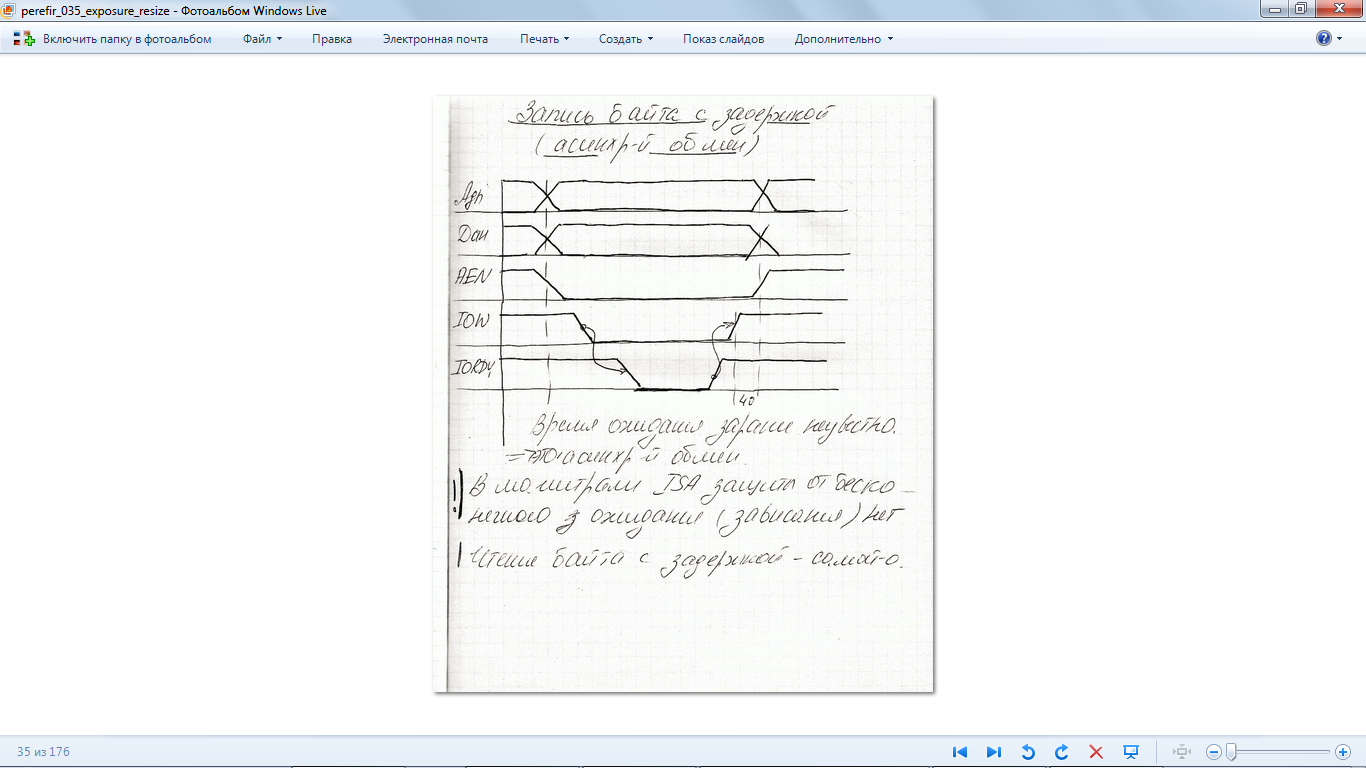 perefir_035_exposure_resize - Фотоальбом Windows Live
Включить папку в фотоальбом Файл Правка Электронная почта Печать Создать Показ слайдов Дополнительно
Запись байта с задержкой
(асинхр-й обмен)
Адр
Дан
AEN
IOW
IORDY
40
Время ожидания заранее неизвестно.
=> это асинхр-й обмен.
!! В магистрали ISA защиты от беско-
нечного ожидания (зависания) нет
! Чтение байта с задержкой - самост-о.
35 из 176